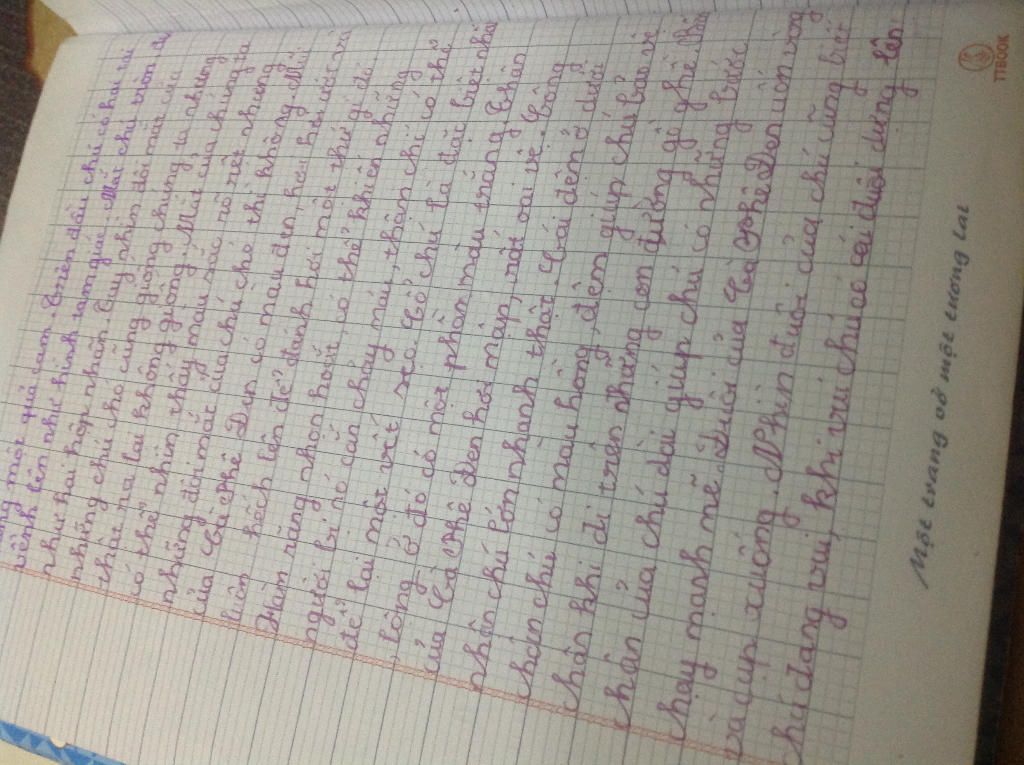 bằng một quả cam. Trên đầu chú có hai tai
vểnh lên như hình tam giác. Mắt chú tròn
như hai hột nhãn. Tuy nhiên đôi mắt của
những chú chó cũng giống chúng ta nhưng
thật ra lại không giống. Mắt của chúng ta
có thể nhìn thấy màu sắc rõ rệt nhưng
những đôi mắt của chú chó thì không. Mũi
của Cà Phê Đen có màu đen, hơi ướt và
luôn hếch lên để đánh hơi một thứ gì đó.
Hàm răng nhọn hoắt, có thể khiến những
người bị nó cắn chảy máu, thậm chí có thể
để lại một vết sẹo. Cổ chú là đặc biệt nhất
, lông ở đó có một phần màu trắng. Thân
của Cà Phê Đen hơi mập, nói oai vệ. Công
nhận chú lớn nhanh thật. Cái đệm ở dưới
chân chú có màu hồng, đệm giúp chú bảo vệ
chân khi đi trên những con đường gồ ghề.
chân của chú dài giúp chú có những bước
chạy mạnh mẽ. Đuôi của Cà Phê Đen uốn vòng
và cụp xuống. Nhìn đuôi của chú cũng biết
chú đang vui, khi vui chú có cái đuôi dựng lên.
Một trang vở một tương lai
TIBOOK